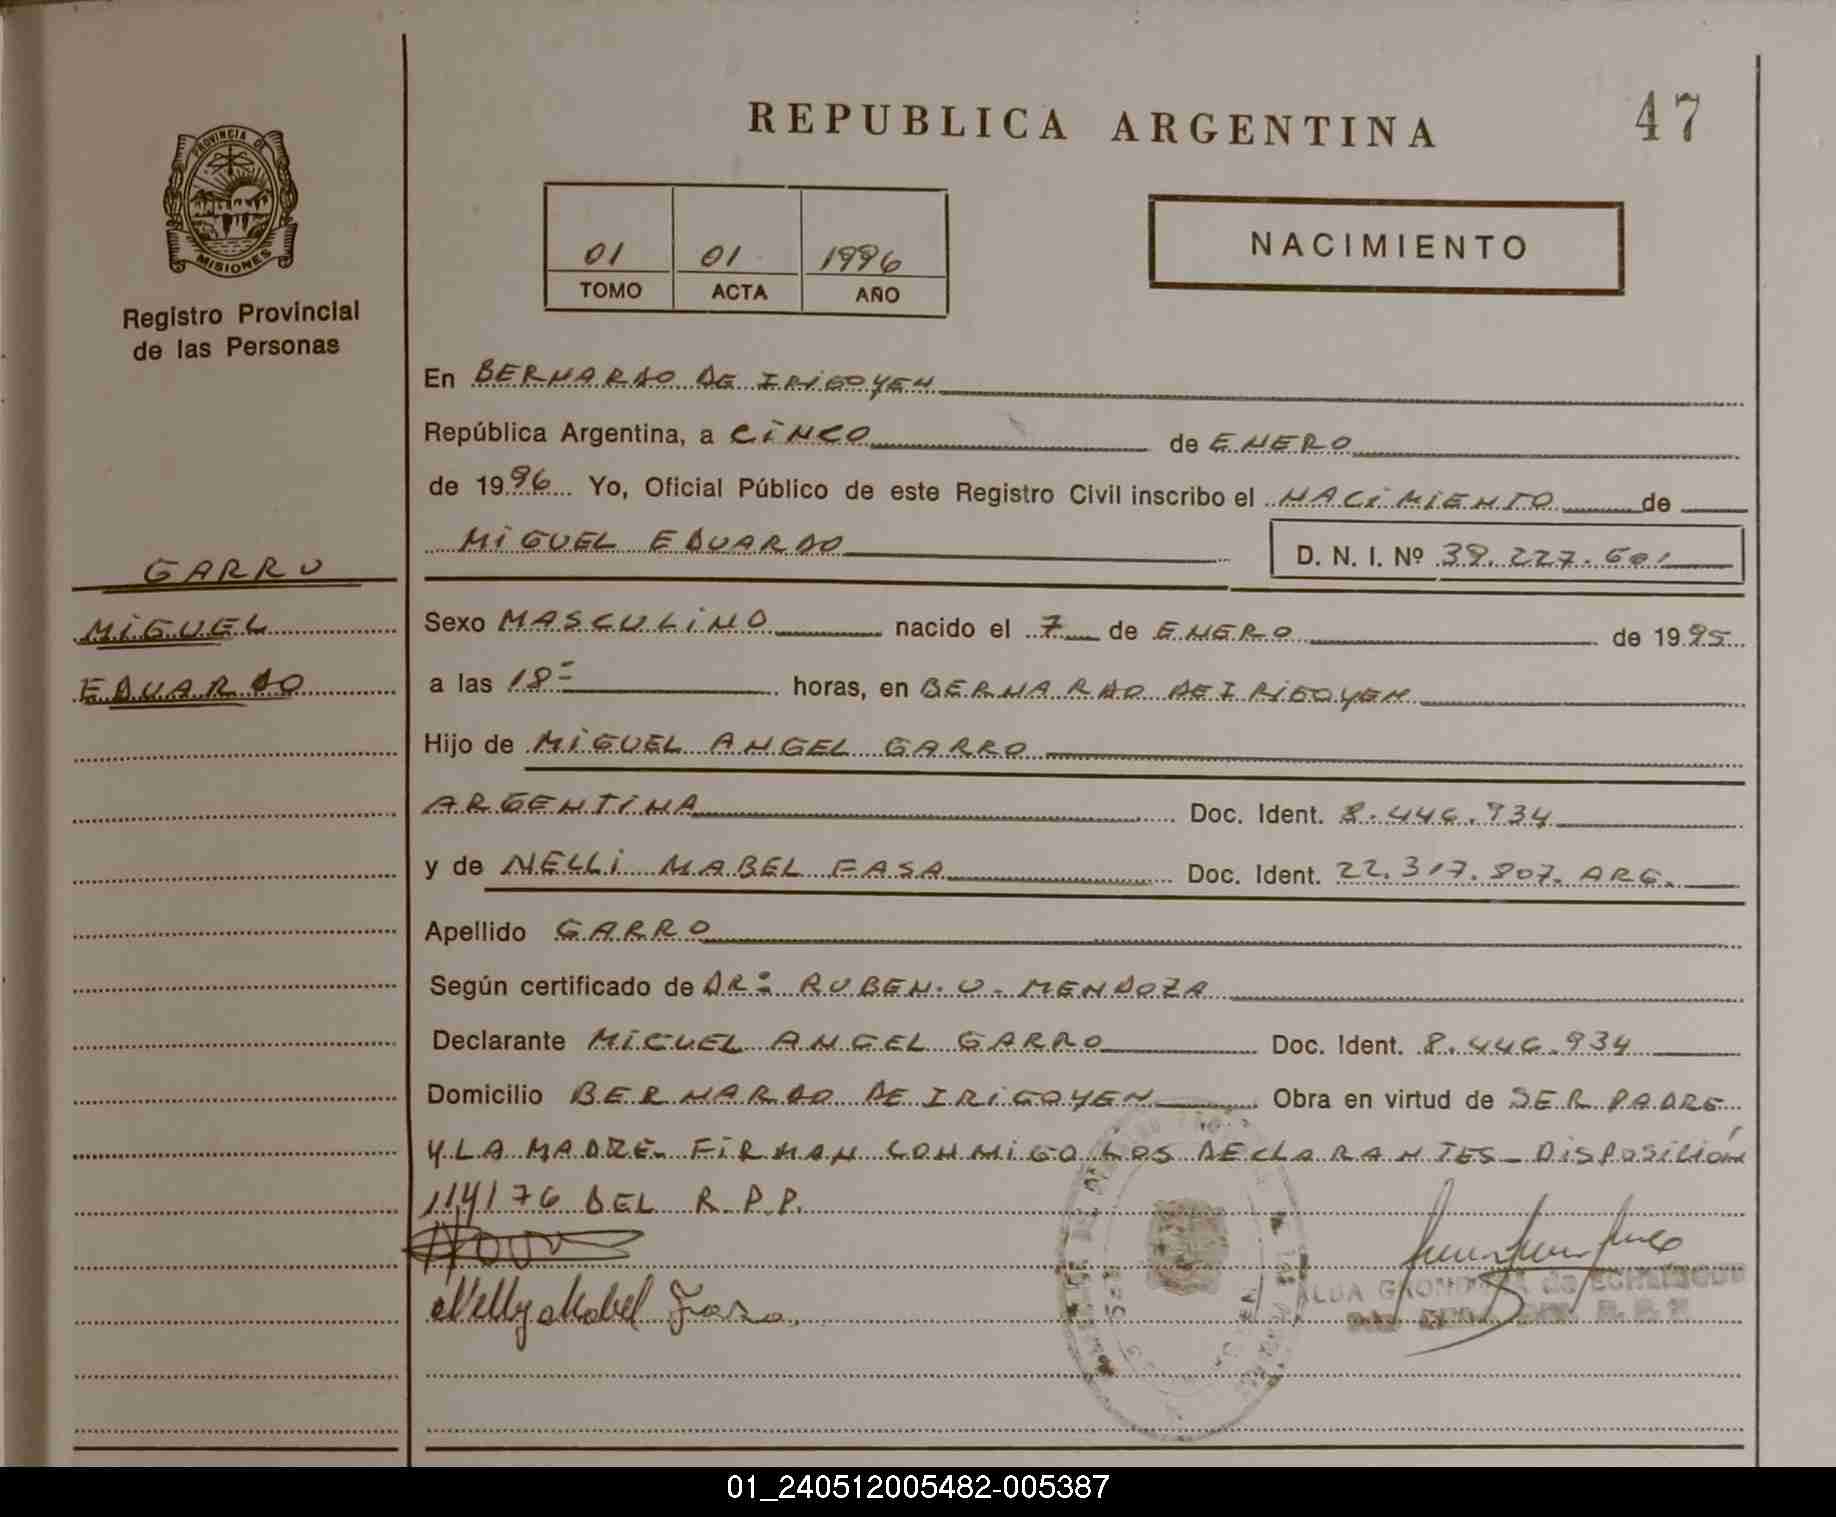 REPUBLICA ARGENTINA
47
PROVINCIA DE
MISIONES
Registro Provincial
de las Personas
01 01 1996
TOMO ACTA AÑO
NACIMIENTO
En BERNARDO DE IRIGOYEN
República Argentina, a CINCO de ENERO
de 1996 Yo, Oficial Público de este Registro Civil inscribo el NACIMIENTO de
MIGUEL EDUARDO D. N. I. Nº 39.227.601
GARRO
MIGUEL
EDUARDO
Sexo MASCULINO nacido el 7 de ENERO de 1995
a las 18= horas, en BERNARDO DE IRIGOYEN
Hijo de MIGUEL ANGEL GARRO
ARGENTINA Doc. Ident. 8.446.934
y de NELLI MABEL FASA Doc. Ident. 22.317.807. ARG.
Apellido GARRO
Según certificado de DR: RUBEN. U. MENDOZA
Declarante MIGUEL ANGEL GARRO Doc. Ident. 8.446.934
Domicilio BERNARDO DE IRIGOYEN Obra en virtud de SER PADRE
Y LA MADRE. FIRMAN CONMIGO LOS DECLARANTES_ DISPOSICIÓN
114/76 DEL R.P.P.
Nelly Mabel Fasa
01_240512005482-005387